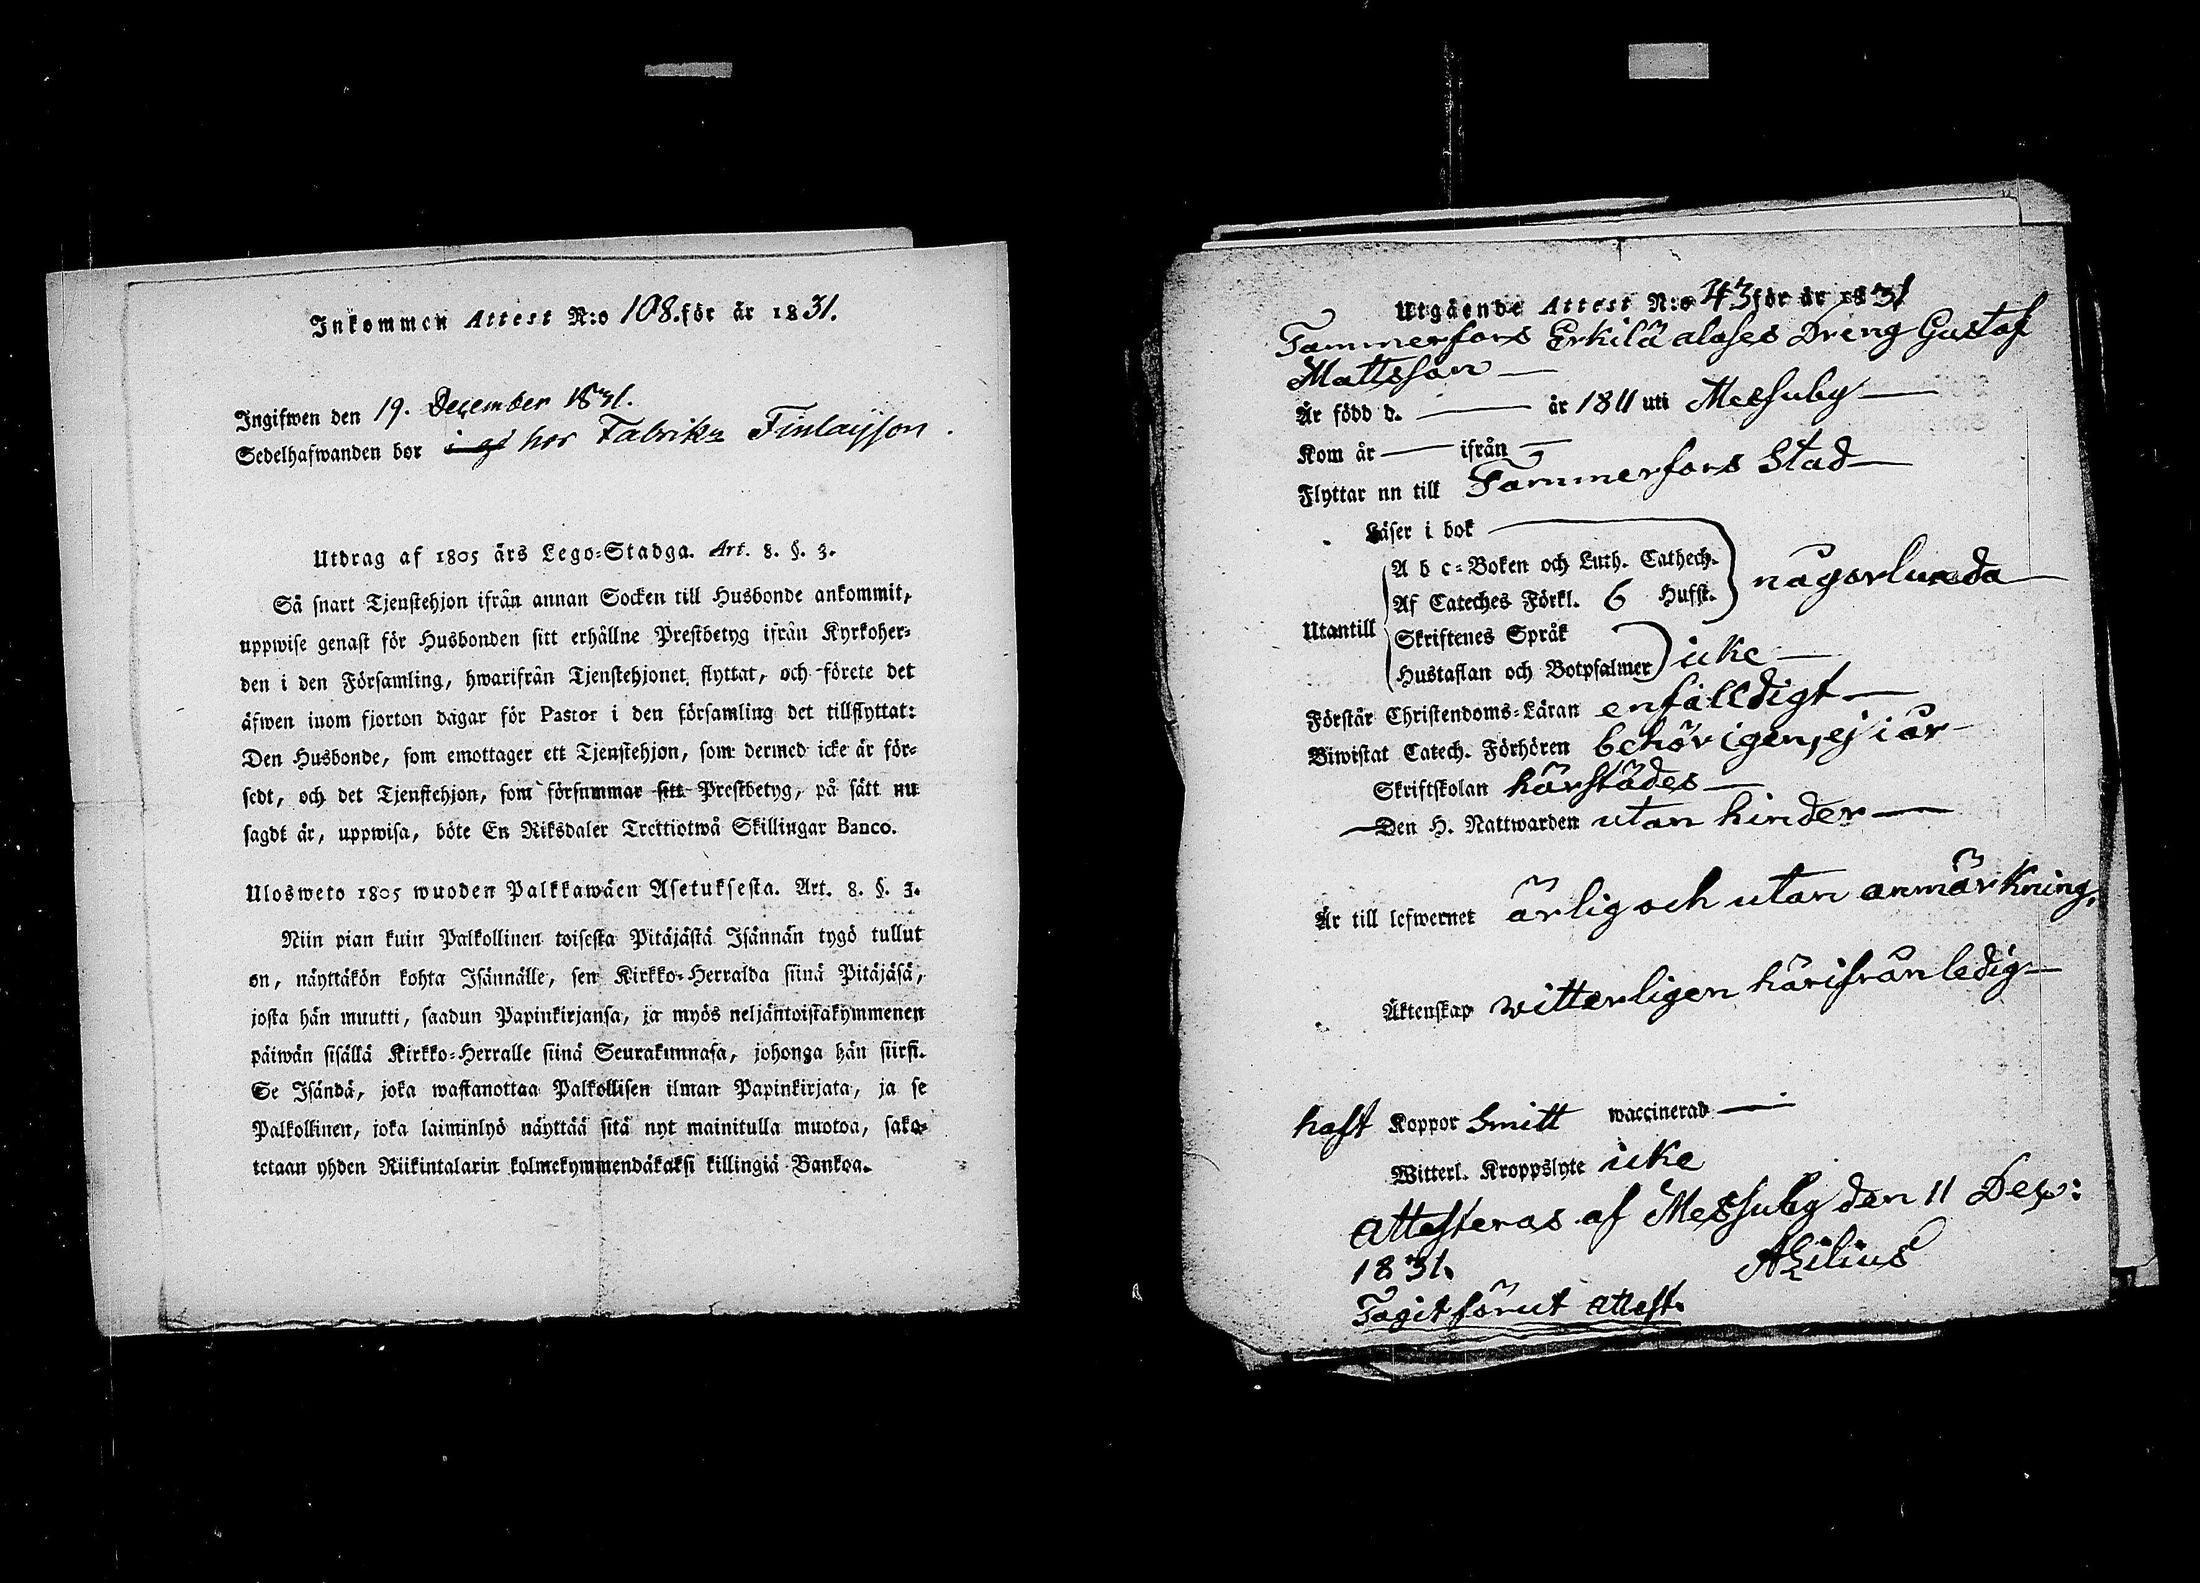 Inkommen Attest N:o 108. för år 1831.
Ingifwen den 19. December 1831.
Sedelhafwanden bor hos Fabrikr Finlaijson.
Utdrag af 1805 års Lego-Stadga. Art. 8. §. 3.
Så snart Tjenstehjon ifrån annan Socken till Husbonde ankommit,
uppwise genast för Husbonden sitt erhållne Prestbetyg ifrån Kyrkoher-
den i den Församling, hwarifrån Tjenstehjonet flyttat, och förete det
äfwen inom fjorton dagar för Pastor i den församling det tillflyttat:
Den Husbonde, som emottager ett Tjenstehjon, som dermed icke är för-
sedt, och det Tjenstehjon, som försummar sitt Prestbetyg, på sätt nu
sagdt är, uppwisa, böte En Riksdaler Trettiotwå Skillingar Banco.
Ulosweto 1805 wuoden Palkkawäen Asetuksesta. Art. 8. §. 3.
Niin pian kuin Palkollinen toisesta Pitäjästä Isännän tygö tullut
on, näyttäkön kohta Isännälle, sen Kirkko-Herralda siinä Pitäjäsä,
josta hän muutti, saadun Papinkirjansa, ja myös neljäntoistakymmenen
päiwän sisällä Kirkko-Herralle siinä Seurakunnasa, johonga hän siirsi.
Se Isändä, joka wastanottaa Palkollisen ilman Papinkirjata, ja se
Palkollinen, joka laiminlyö näyttää sitä nyt mainitulla muotoa, sako-
tetaan yhden Riikintalarin kolmekymmendäkaksi killingiä Bankoa.
Utgående Attest N:o 43 för år 1831
Tammerfors Erkilä aloses Dreng Gustaf
Mattsson —
Är född d. — år 1811 uti Messuby —
Kom år — ifrån —
Flyttar nu till Tammerfors Stad —
Läser i bok
A b c-Boken och Luth. Cathech.
Af Cateches Förkl. 6 Hufst. någorlunda
Utantill
Skriftenes Språk
Hustaflan och Botpsalmer icke —
Förstår Christendoms-Läran enfälldigt —
Biwistat Catech. Förhören behörigen, ej i år —
Skriftskolan härstädes —
Den H. Nattwarden utan hinder —
Är till lefwernet ärlig och utan anmärkning,
Äktenskap witterligen härifrån ledig —
haft Koppor Smitt waccinerad —
Witterl. Kroppslyte icke
Attesteras af Messuby den 11 Dec:
1831.
Tagit förut attest.